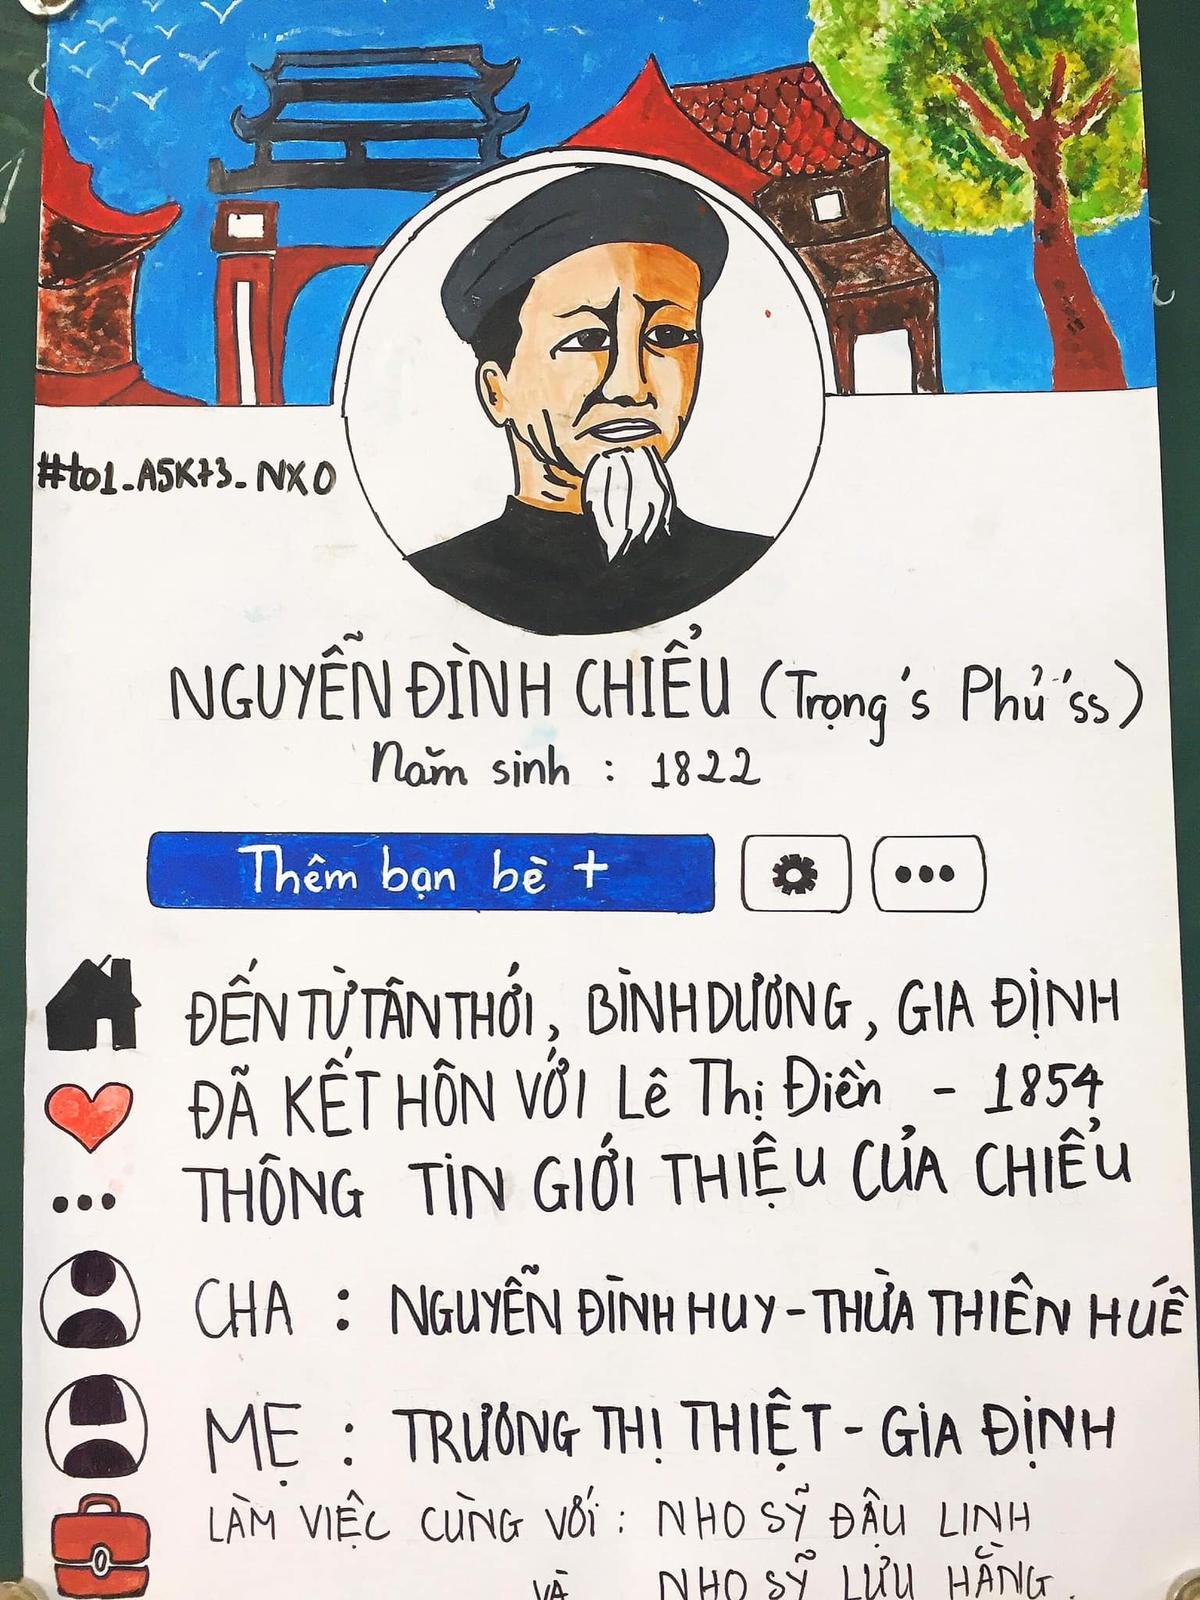 #to1_A5K73_NXO
NGUYỄN ĐÌNH CHIỂU (Trọng's Phủ'ss)
Năm sinh : 1822
Thêm bạn bè +
ĐẾN TỪ TÂN THỚI, BÌNH DƯƠNG, GIA ĐỊNH
ĐÃ KẾT HÔN VỚI Lê Thị Điền - 1854
THÔNG TIN GIỚI THIỆU CỦA CHIỂU
CHA : NGUYỄN ĐÌNH HUY - THỪA THIÊN HUẾ
MẸ : TRƯƠNG THỊ THIỆT - GIA ĐỊNH
LÀM VIỆC CÙNG VỚI : NHO SỸ ĐẬU LINH
VÀ NHO SỸ LƯU HẰNG.